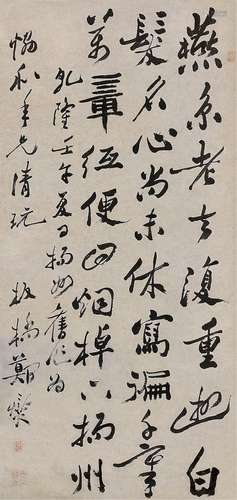 燕京老去復重遊白
髮名心尚未休寫遍千章
萬紙便回烟棹下揚州
乾隆壬午夏日揚州舊作為
和年兄清玩 板橋鄭燮